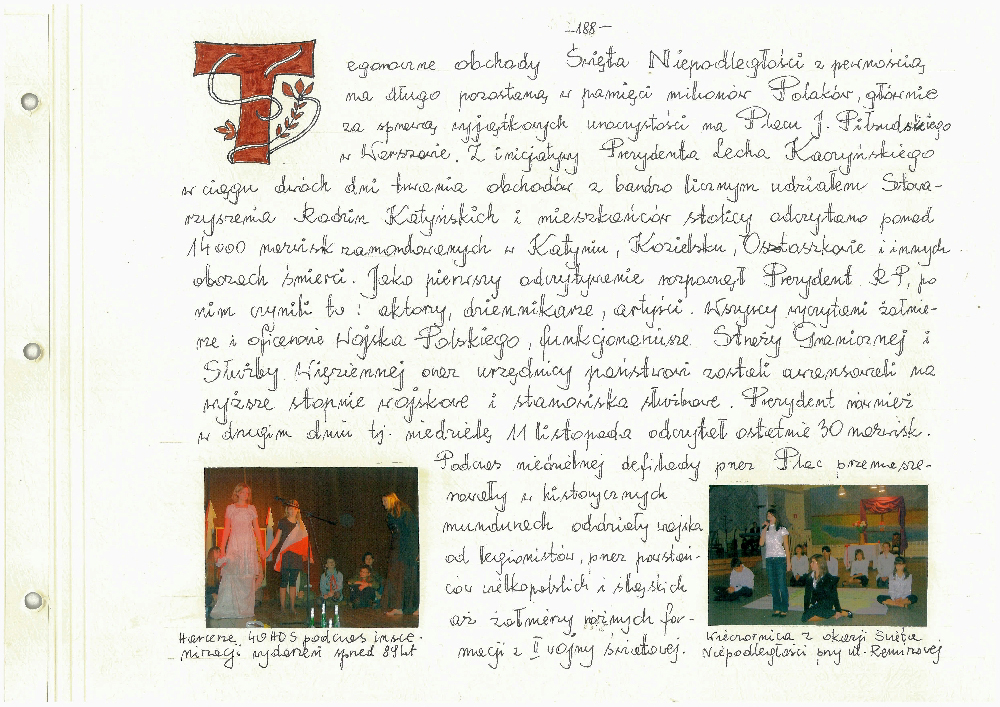 -188-
Tegoroczne obchody Święta Niepodległości z pewnością
na długo pozostaną w pamięci milionów Polaków, głównie
za sprawą wyjątkowych uroczystości na Placu J. Piłsudskiego
w Warszawie. Z inicjatywy Prezydenta Lecha Kaczyńskiego
w ciągu dwóch dni trwania obchodów z bardzo licznym udziałem Stowa-
rzyszenia Rodzin Katyńskich i mieszkańców stolicy odczytano ponad
14000 nazwisk zamordowanych w Katyniu, Kozielsku, Osztaszkowie i innych
obozach śmierci. Jako pierwszy odczytywanie rozpoczął Prezydent RP, po
nim czynili to: aktorzy, dziennikarze, artyści. Wszyscy wyczytani żołnie-
rze i oficerowie Wojska Polskiego, funkcjonariusze Straży Granicznej i
Służby Więziennej oraz urzędnicy państwowi zostali awansowali na
wyższe stopnie wojskowe i stanowiska służbowe. Prezydent również
w drugim dniu tj. niedzielę 11 listopada odczytał ostatnie 30 nazwisk.
Podczas niedzielnej defilady przez Plac przemasze-
rowały w historycznych
mundurach oddziały wojska
od legionistów, przez powstań-
ców wielkopolskich i śląskich
aż żołnierzy różnych for-
macji z II wojny światowej.
Harcerze 49 HDS podczas insce-
nizacji wydarzeń sprzed 89 lat
Wieczornica z okazji Święta
Niepodległości przy ul. Remizowej